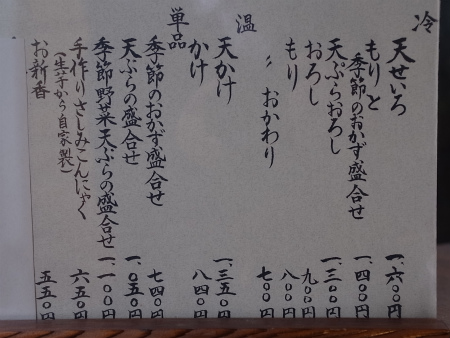 冷
天せいろ 一、六〇〇円
もりと
季節のおかず盛合せ 一、四〇〇円
天ぷらおろし 一、三〇〇円
おろし 九〇〇円
もり 八〇〇円
〃 おかわり 七〇〇円
温
天かけ 一、三五〇円
かけ 八四〇円
単品
季節のおかず盛合せ 七四〇円
天ぷらの盛合せ 一、〇五〇円
季節野菜天ぷらの盛合せ 一、一〇〇円
手作りさしみこんにゃく 六五〇円
(生芋から自家製)
お新香 五五〇円